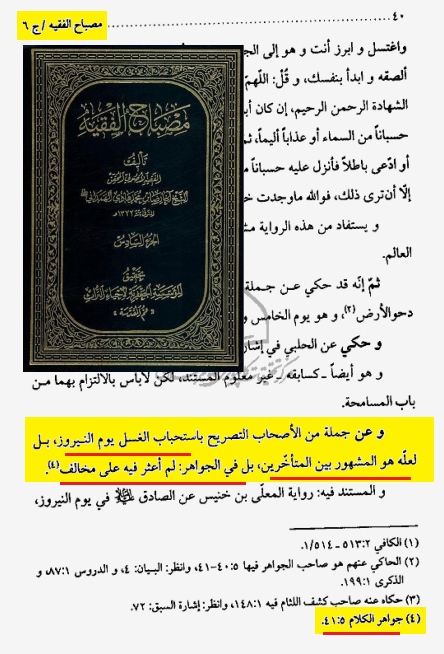 ٤٠
مصباح الفقيه /ج ٦
واغتسل و ابرز أنت و هو إلى الج
ألصقه و ابدأ بنفسك، و قُلْ: اللّهمّ
الشهادة الرحمن الرحيم، إن كان أب
حسباناً من السماء أو عذاباً أليماً، ثم
أو ادّعى باطلاً فأنزل عليه حسباناً م
إلّا أن ترى ذلك، فوالله ماوجدت خ
و يستفاد من هذه الرواية مش
العالم.
ثمّ إنّه قد حكي عن جملة
دحوالأرض(٢)، و هو يوم الخامس و
و حكي عن الحلبي في إشار
و هو أيضاً ـ كسابقه ـ غير معلوم المستند، لكن لاباس بالالتزام بهما من
باب المسامحة.
و عن جملة من الأصحاب التصريح باستحباب الغسل يوم النيروز، بل
لعلّه هو المشهور بين المتأخّرين، بل في الجواهر: لم أعثر فيه على مخالف(٤).
و المستند فيه: رواية المعلّى بن خنيس عن الصادق عليه السلام في يوم النيروز،
(١) الكافي ٢: ٥١٣ـ١/٥١٤.
(٢) الحاكي عنهم هو صاحب الجواهر فيها ٥: ٤٠-٤١، وانظر: البيان: ٤، و الدروس ١: ٨٧، و
الذكرى ١: ١٩٩.
(٣) حكاه عنه صاحب كشف اللثام فيه ١: ١٤٨، وانظر: إشارة السبق: ٧٢.
(٤) جواهر الكلام ٥: ٤١.
مصباح الفقيه
تأليف
الجزء السادس
تحقيق
المؤسسة الجعفرية لإحياء التراث